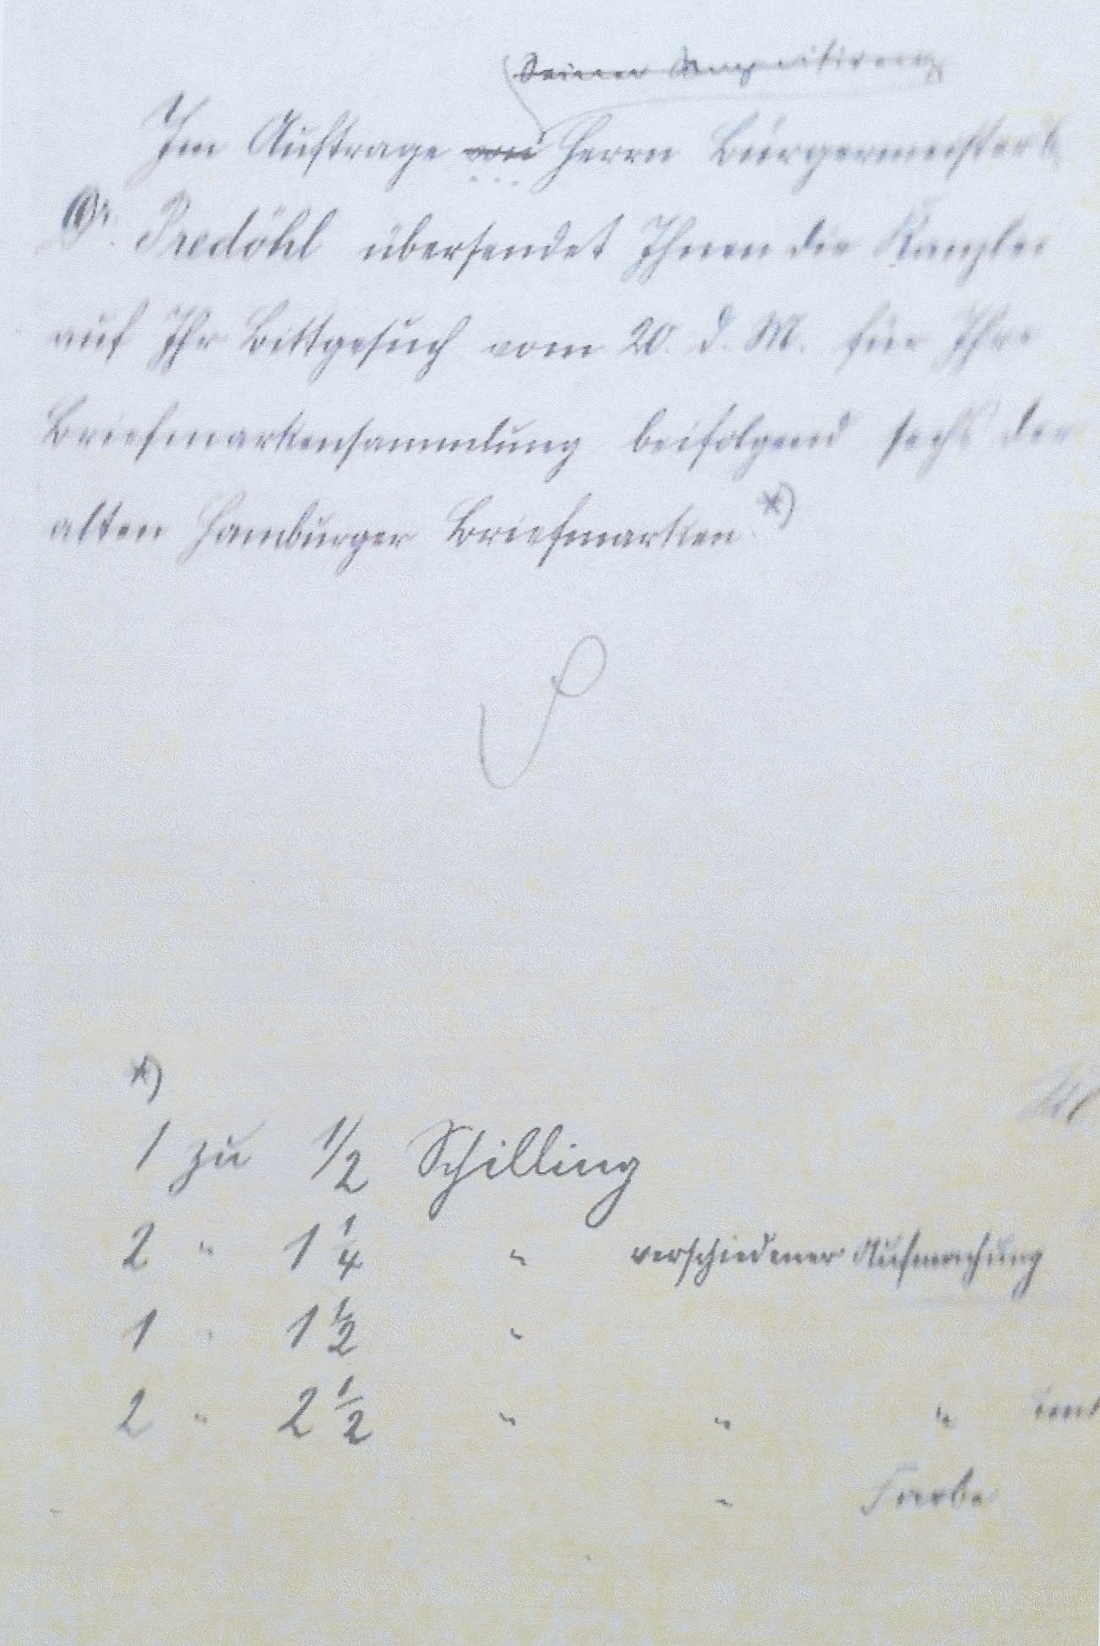 Seiner Magnificenz
Im Auftrage von Herrn Bürgermeisters
Dr. Predöhl übersendet Ihnen die Kanzlei
auf Ihr Bittgesuch vom 20. d. M. für Ihre
Briefmarkensammlung beifolgend sechs der
alten Hamburger Briefmarken. *)
*)
1 zu 1/2 Schilling
2 " 1 1/4 " verschiedener Aufmachung
1 " 1 1/2 "
2 " 2 1/2 " " "
" Farbe